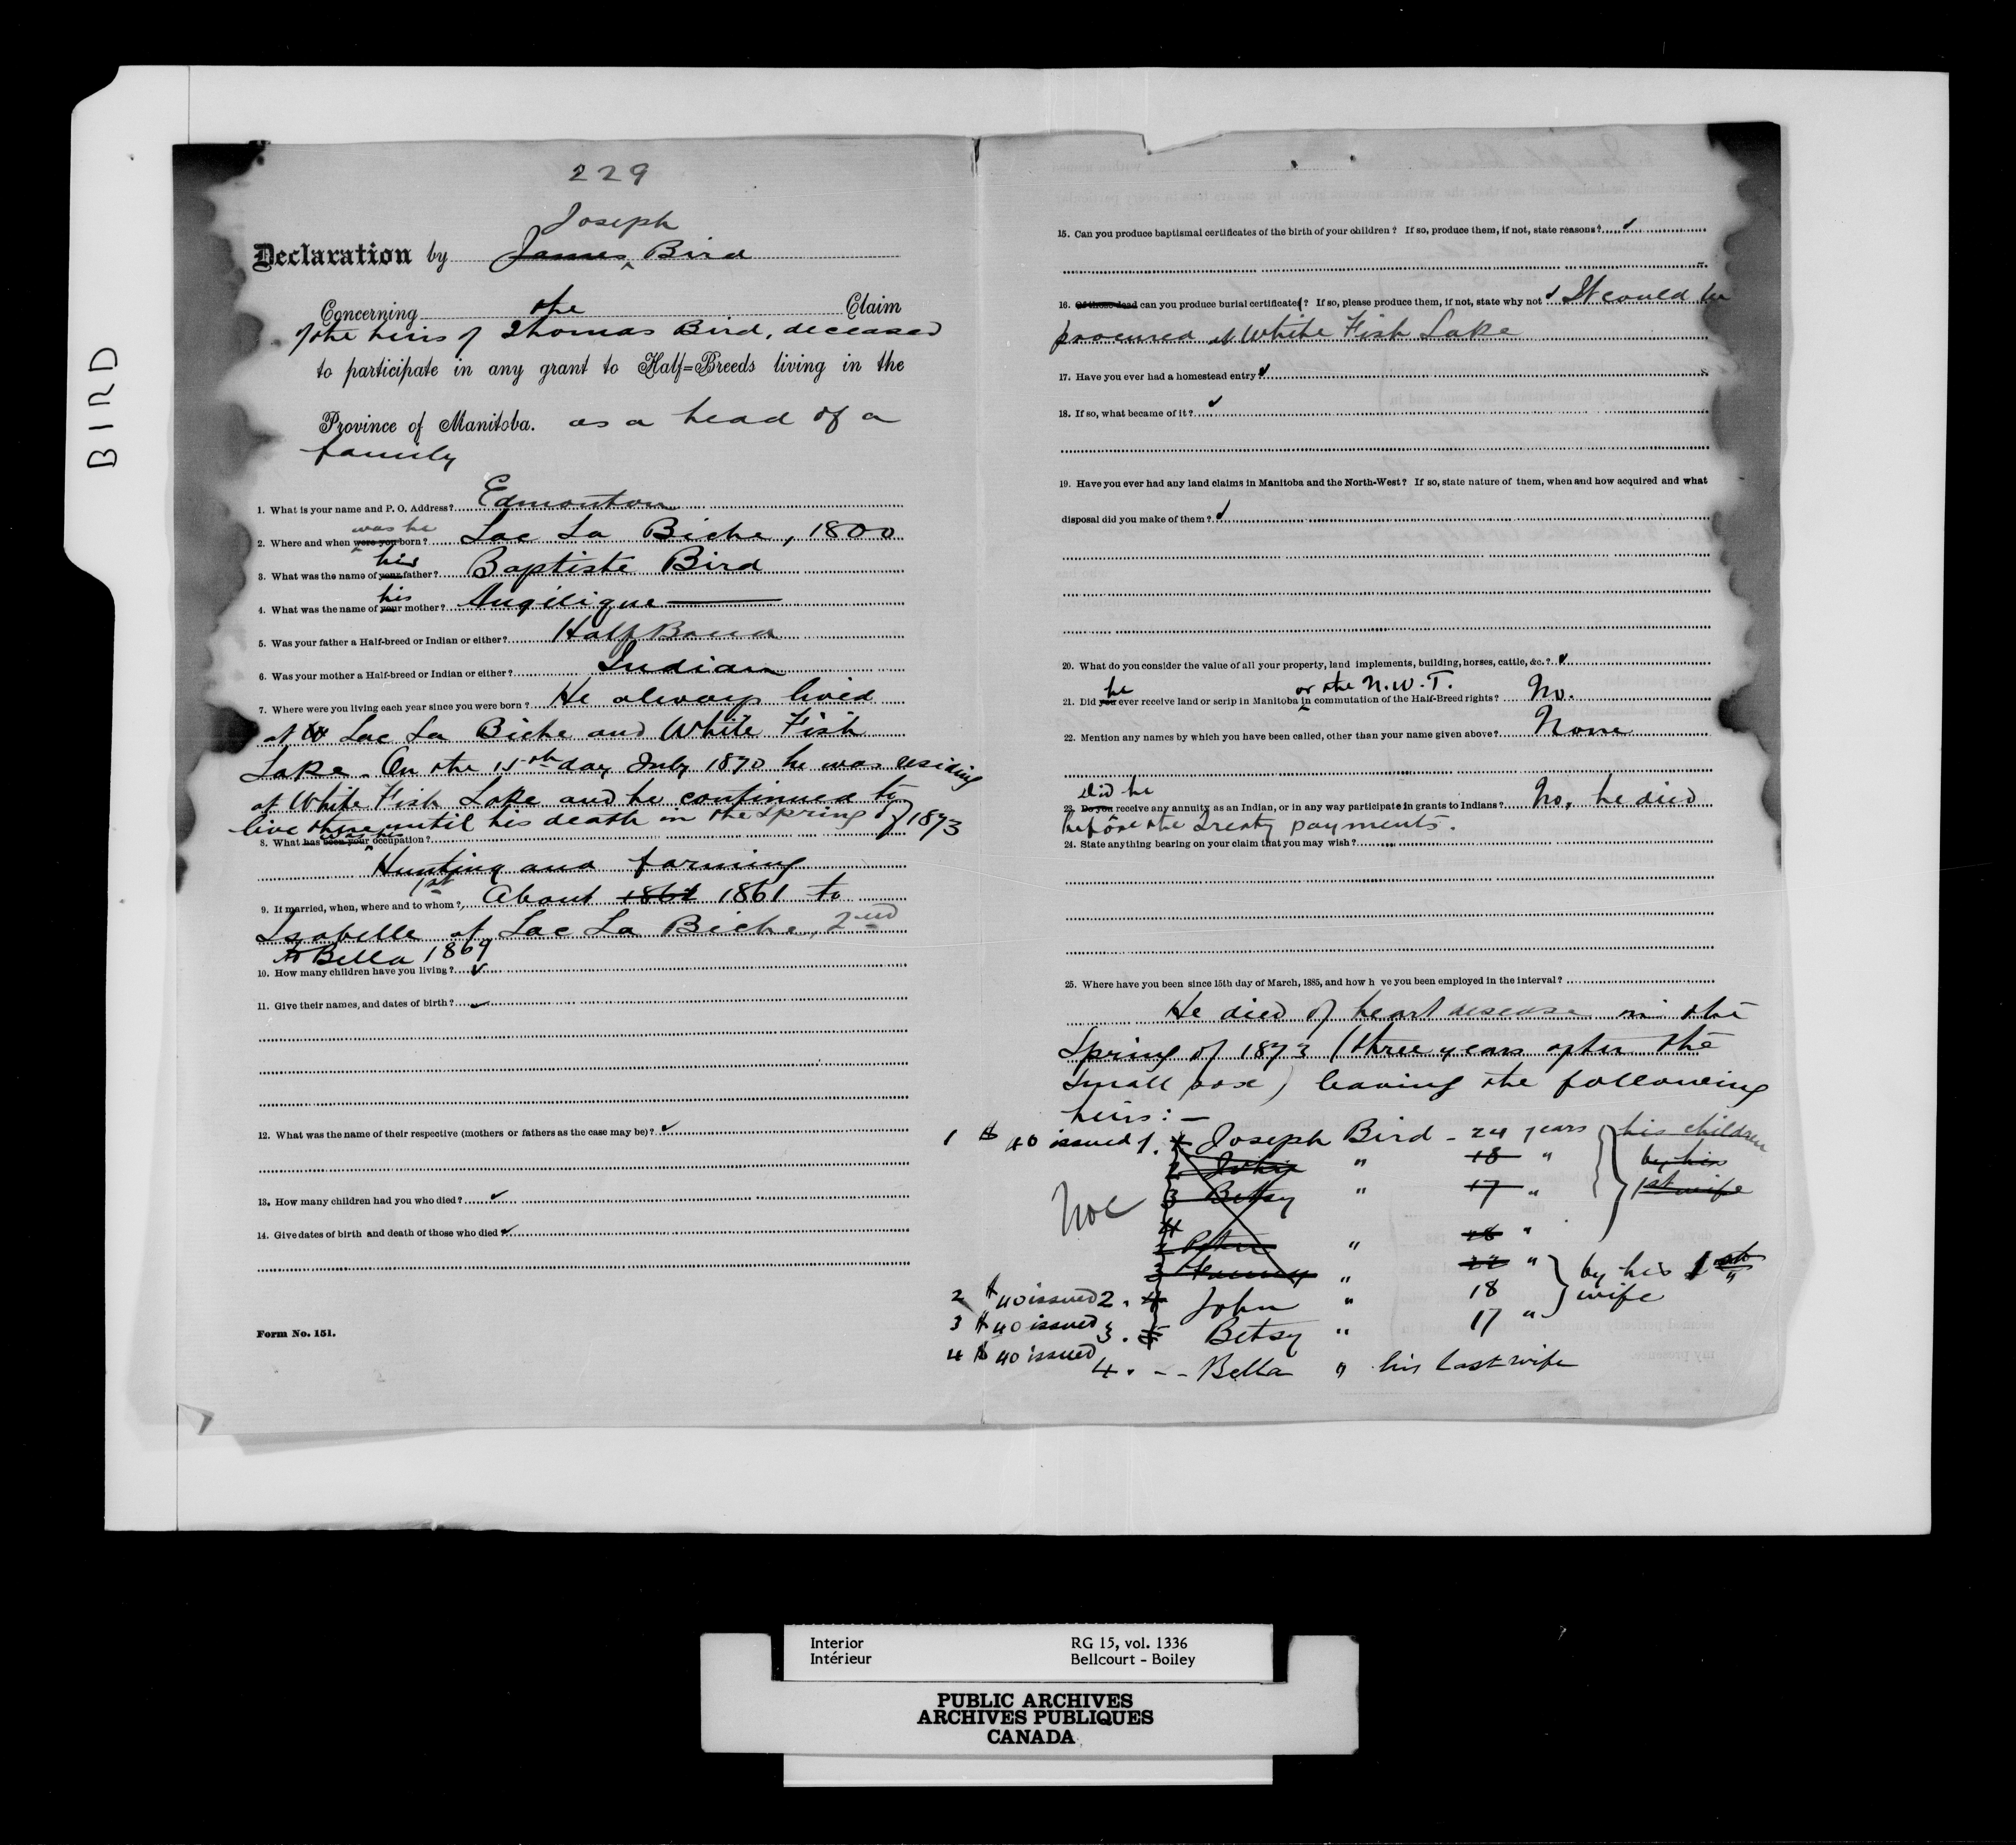 BIRD
229
Joseph
Declaration by James Bird
Concerning the Claim
of the heirs of Thomas Bird, deceased
to participate in any grant to Half=Breeds living in the
Province of Manitoba. as a head of a
family
1. What is your name and P. O. Address? Edmonton
was he
2. Where and when were you born? Lac La Biche, 1800
his
3. What was the name of your father? Baptiste Bird
his
4. What was the name of your mother? Angelique
5. Was your father a Half-breed or Indian or either? Half Breed
6. Was your mother a Half-breed or Indian or either? Indian
7. Where were you living each year since you were born? He always lived
at Lac La Biche and White Fish
Lake. On the 15th day July 1870 he was residing
at White Fish Lake and he continued to
live there until his death in the Spring of 1873
was his
8. What has been your occupation?
Hunting and farming
1st
9. If married, when, where and to whom? About 1862 1861 to
Isabelle at Lac La Biche, 2nd
to Bella 1869
10. How many children have you living? ✓
11. Give their names, and dates of birth? ✓
12. What was the name of their respective (mothers or fathers as the case may be)? ✓
13. How many children had you who died? ✓
14. Give dates of birth and death of those who died ✓
Form No. 151.
15. Can you produce baptismal certificates of the birth of your children? If so, produce them, if not, state reasons? ✓
16. Of those dead can you produce burial certificates? If so, please produce them, if not, state why not ✓ It could be
procured at White Fish Lake
17. Have you ever had a homestead entry? ✓
18. If so, what became of it? ✓
19. Have you ever had any land claims in Manitoba and the North-West? If so, state nature of them, when and how acquired and what
disposal did you make of them? ✓
20. What do you consider the value of all your property, land implements, building, horses, cattle, &c.? ✓
he or the N.W.T.
21. Did you ever receive land or scrip in Manitoba in commutation of the Half-Breed rights? No.
22. Mention any names by which you have been called, other than your name given above? None
did he
23. Do you receive any annuity as an Indian, or in any way participate in grants to Indians? No, he died
before the Treaty payments.
24. State anything bearing on your claim that you may wish?
25. Where have you been since 15th day of March, 1885, and how h ve you been employed in the interval?
He died of heart disease in the
Spring of 1873 (three years after the
small pox) leaving the following
heirs:—
1 $40 issued 1. Joseph Bird - 24 years his children
2 John " 18 " by his
3 Betsy " 17 " 1st wife
4
2 Peter " "
3 " 22 " by his 1st
2 $40 issued 2. 4 John " 18 wife
3 $40 issued 3. 5 Betsy " 17 "
4 $40 issued 4. -- Bella " his last wife
Interior RG 15, vol. 1336
Intérieur Bellcourt - Boiley
PUBLIC ARCHIVES
ARCHIVES PUBLIQUES
CANADA